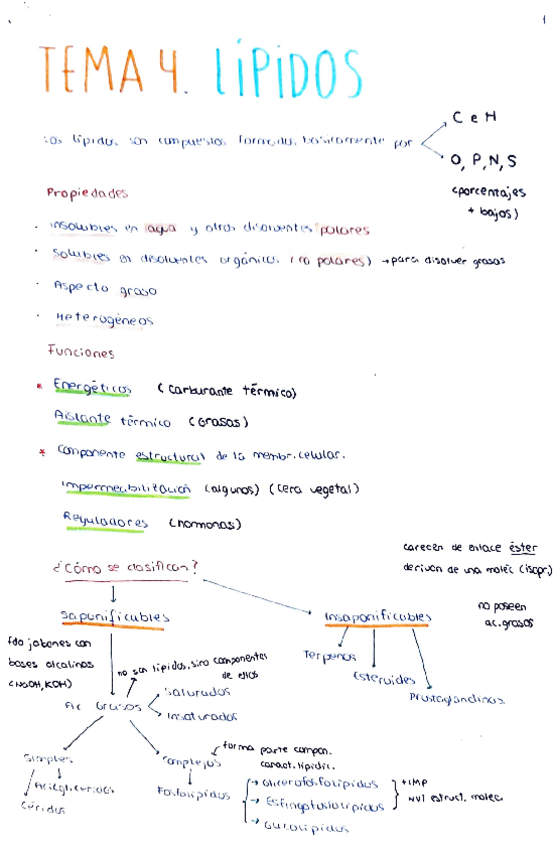 1
TEMA 4. LÍPIDOS
Los lípidos son compuestos formados básicamente por
C e H
O, P, N, S
(porcentajes
+ bajos)
Propiedades
· Insolubles en agua y otros disolventes polares
· Solubles en disolventes orgánicos (no polares) → para disolver grasas
· Aspecto graso
· Heterogéneos
Funciones
* Energéticos (carburante térmico)
Aislante térmico (Grasas)
* Componente estructural de la membr. celular.
Impermeabilización (algunos) (cera vegetal)
Reguladores (hormonas)
carecen de enlace éster
derivan de una moléc (isopr.)
¿Cómo se clasifican?
no poseen
ac. grasos
Saponificables
Insaponificables
fdo jabones con
bases alcalinas
(NaOH, KOH)
Terpenos
Esteroides
Prostaglandinas
no son lípidos, sino componentes
de ellos
Ac Grasos
Saturados
Insaturados
Simples
Acilglicéridos
Céridos
Complejos
forma parte compon.
caract. lipídic.
Fosfolípidos
→ Glicerofosfolípidos
→ Esfingofosfolípidos
→ Glucolípidos
+ IMP
nvl estruct. molec.